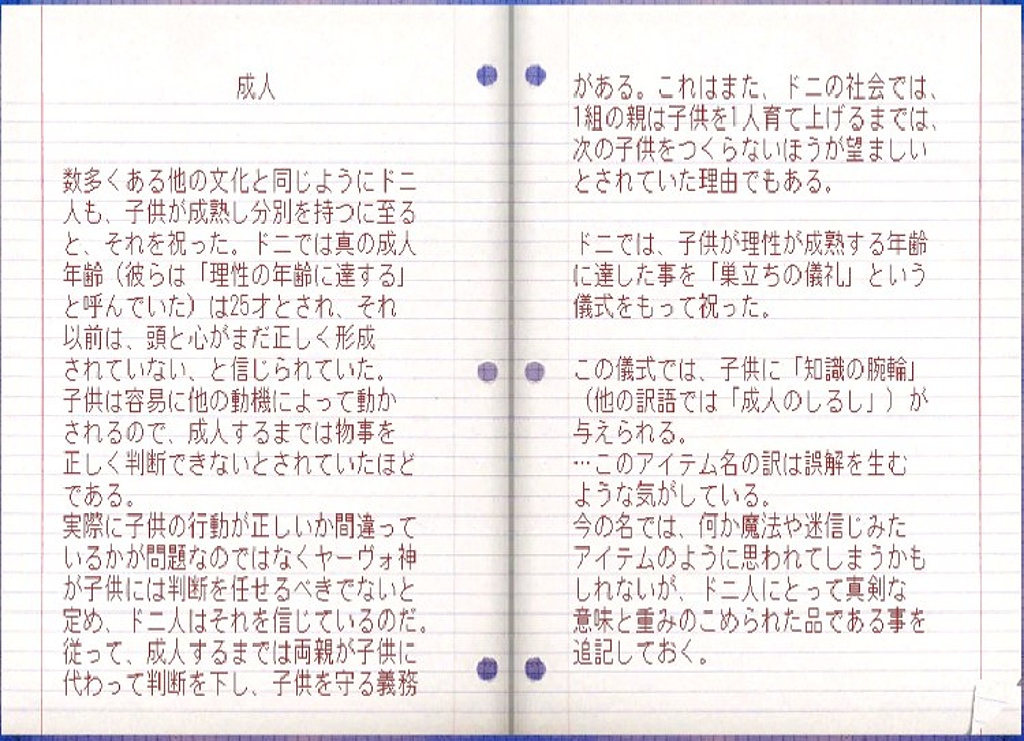 成人
数多くある他の文化と同じようにドニ
人も、子供が成熟し分別を持つに至る
と、それを祝った。ドニでは真の成人
年齢（彼らは「理性の年齢に達する」
と呼んでいた）は25才とされ、それ
以前は、頭と心がまだ正しく形成
されていない、と信じられていた。
子供は容易に他の動機によって動か
されるので、成人するまでは物事を
正しく判断できないとされていたほど
である。
実際に子供の行動が正しいか間違って
いるかが問題なのではなくヤーヴォ神
が子供には判断を任せるべきでないと
定め、ドニ人はそれを信じているのだ。
従って、成人するまでは両親が子供に
代わって判断を下し、子供を守る義務
がある。これはまた、ドニの社会では、
1組の親は子供を1人育て上げるまでは、
次の子供をつくらないほうが望ましい
とされていた理由でもある。
ドニでは、子供が理性が成熟する年齢
に達した事を「巣立ちの儀礼」という
儀式をもって祝った。
この儀式では、子供に「知識の腕輪」
（他の訳語では「成人のしるし」）が
与えられる。
…このアイテム名の訳は誤解を生む
ような気がしている。
今の名では、何か魔法や迷信じみた
アイテムのように思われてしまうかも
しれないが、ドニ人にとって真剣な
意味と重みのこめられた品である事を
追記しておく。